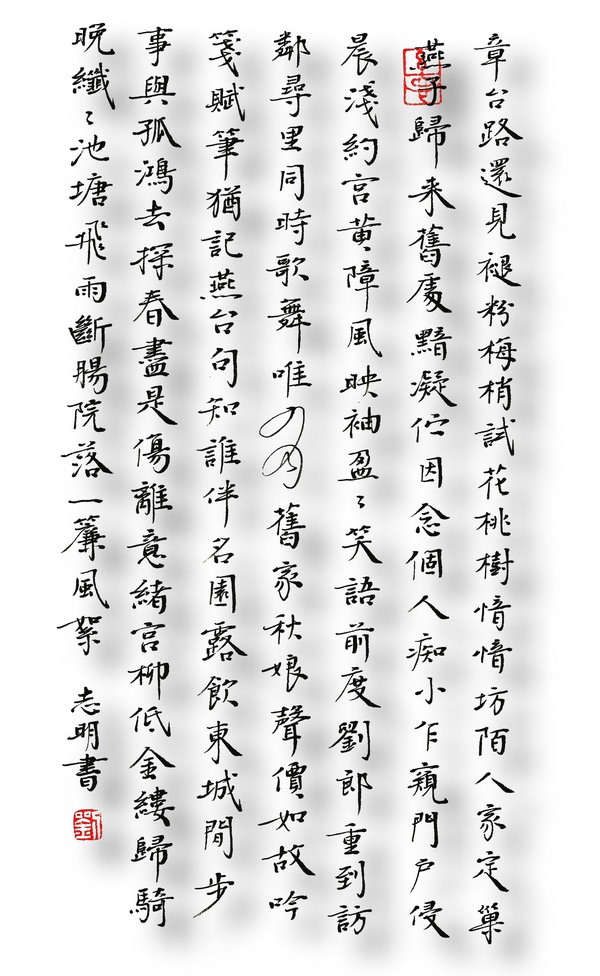 章台路還見褪粉梅梢試花桃樹愔愔坊陌人家定巢
燕子歸来舊處黯凝伫因念個人痴小乍窺門戶侵
晨淺約宮黄障風映袖盈〻笑語前度劉郎重到訪
鄰尋里同時歌舞唯舊家秋娘聲價如故吟
箋賦筆猶記燕台句知誰伴名園露飲東城閒步
事與孤鴻去探春盡是傷離意緒官柳低金縷歸騎
晚纖〻池塘飛雨斷腸院落一簾風絮
志明書
劉